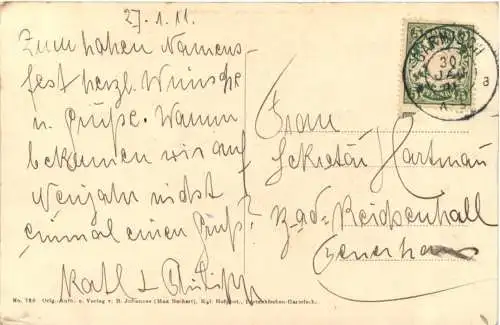 27.1.11.
Zum hohen Namens-
fest herzl. Wünsche
u. Grüße. Warum
bekamen wir auf
Neujahr nicht
einmal einen Gruß?
Kathl + Philipp
Frau
Sekretär Hartmann
Bad-Reichenhall
30
JAN
No. 780 Orig.-Aufn. u. Verlag v. B. Johannes (Max Beckert), Kgl. Hofphot., Partenkirchen-Garmisch.